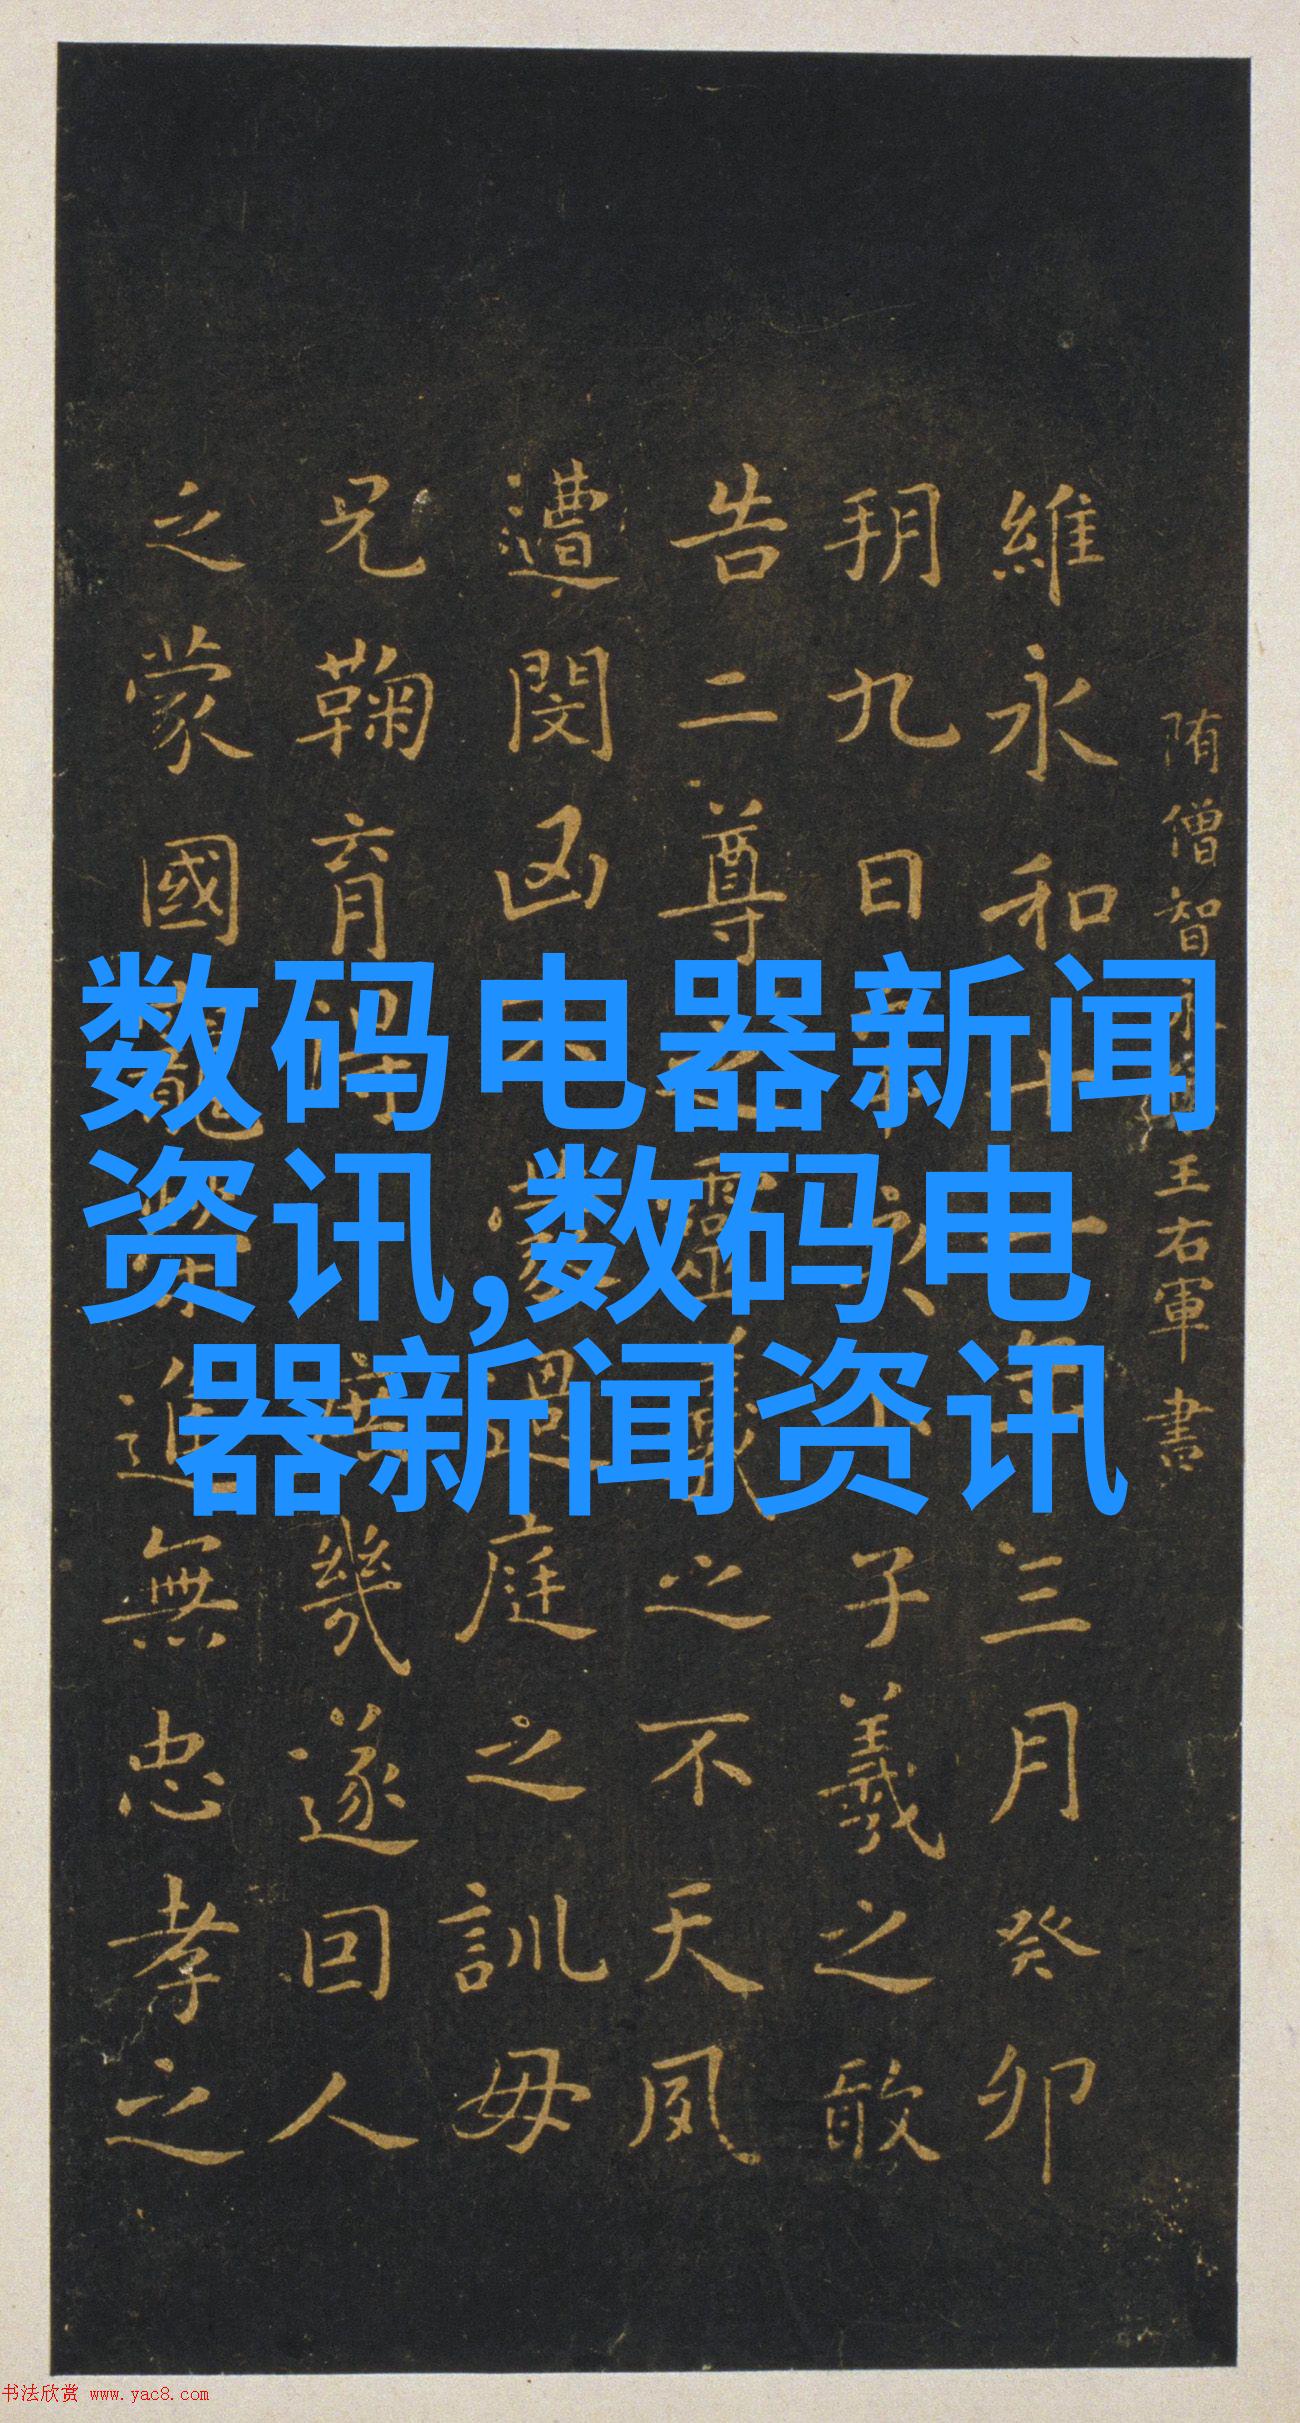 数码电器新闻
资讯,数码电
器新闻资讯
隋僧智王右軍書
維永和十一年三月癸卯
朔九日子羲之敢
告二尊之靈羲之不天夙
遭閔凶不蒙過庭之訓毋
兄鞠育得庶幾遂回人
之蒙國寵榮進無忠孝之
书法欣赏 www.yac8.com